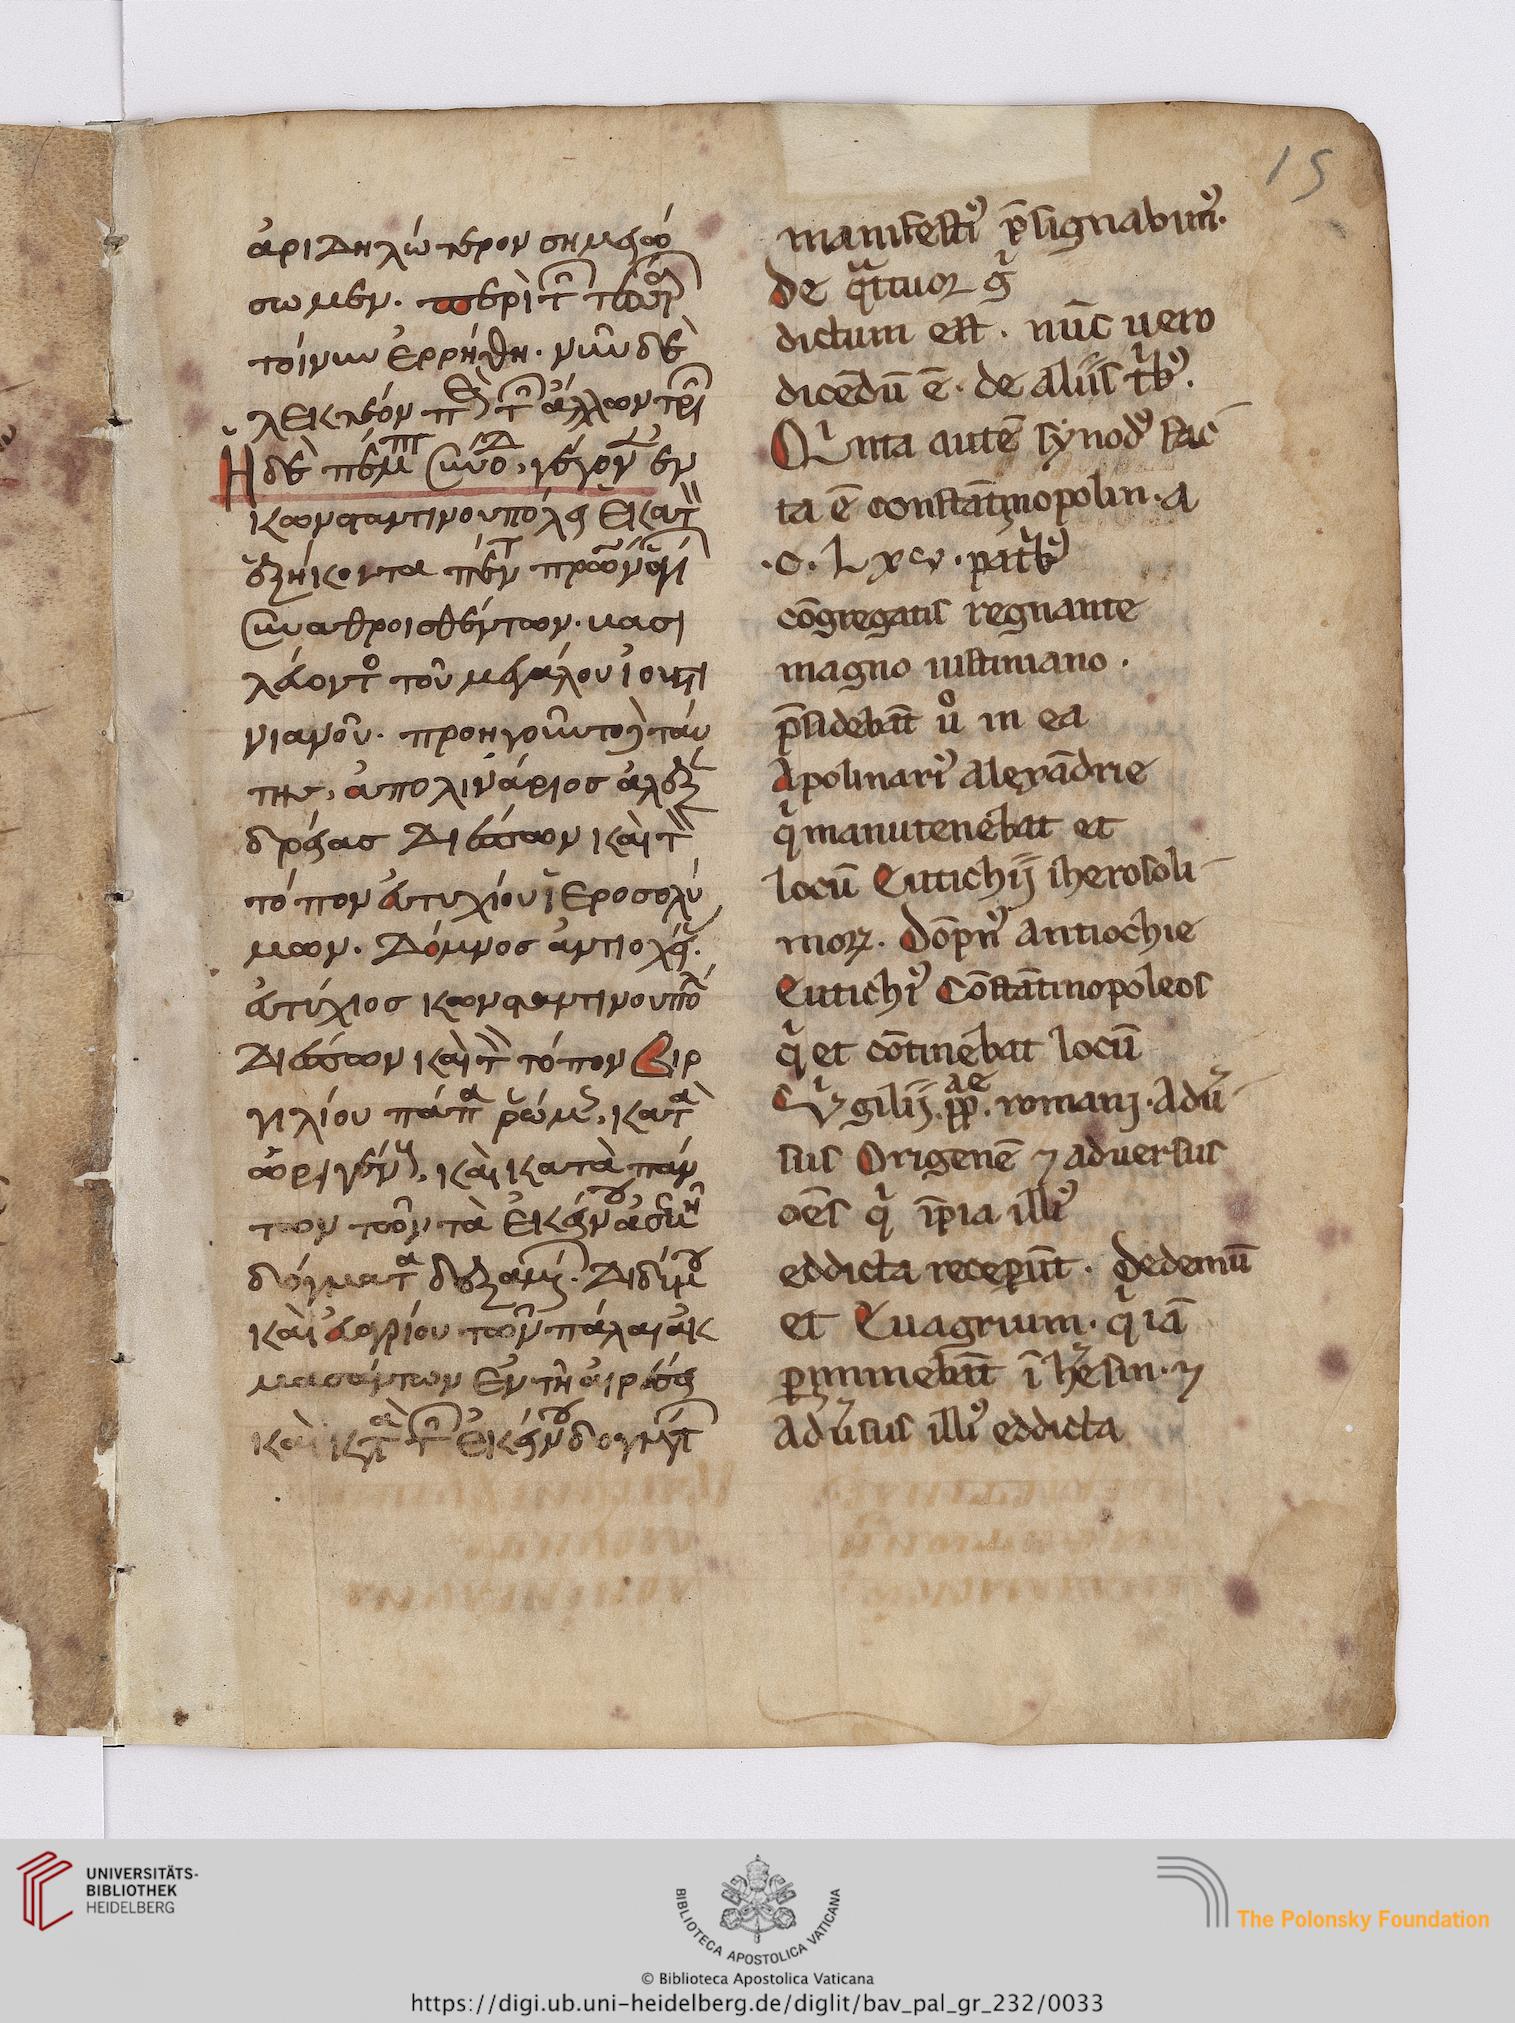 15
ἀριδηλώτερον σημειω
σωμεν. περὶ τ̑
τοίνυν ἐρρήθη. νῦν δὲ
λεκτέον π τ̑ ἄλλων τρι
Ἡ δὲ πέμπ συνό, γέγον ἐν
κωνσταντινουπόλει ἑκατ
ἑξήκοντα πέντ
συναθροισθέντων. βασι
λεύοντο τοῦ μεγάλου ἰουστι
νιανοῦ. προηγοῦντο ταύ
της, ἀπολινάριος ἀλεξ
δρείας διέπων καὶ τ
τόπον εὐτυχίου ἱεροσολύ
μων. Δόμνος ἀντιοχεί.
εὐτύχιος κωνσταντινουπό
διέπων καὶ τ τόπον βιρ
γιλίου πάπα ῥώμ, κατὰ
ὠριγέν, καὶ κατὰ πάν
των τῶν τὰ ἐκείνου ἀσεβῆ
δόγματα δεξαμ. Διδύμου
καὶ εὐαγρίου τῶν πάλαι ἀκ
μασάντων ἐν τῇ αἱρέσει
καὶ κτὰ τ̑ ἐκείνου δογμάτ
manifesti⁹ p̄signabim⁹.
de q̃ttuor gͥ
dictum est. nūc uero
dicēdū ē. de aliis trͥb⁹.
Qͥnta autē synod⁹ fac̄
ta ē constātinopolin. a
.c. Lxv. patͥb⁹
cōgregatis regnante
magno iustiniano.
p̄sidebāt ů in ea
Apolinari⁹ alexādrie
qͥ manutenebat et
locū Eutichij iherosoli
moꝝ. Dōpn⁹ antiochie
Eutichi⁹ Cōstātinopoleos
qͥ et cōtinebat locū
Vͥgilij. pp. ae romanj. Adū
sus Origenē ⁊ aduersus
oēs qͥ īpia illi⁹
eddicta receperūt. Dedemū
et Euagrium. qͥ iā
ꝑminebāt ī hesin. ⁊
adūsus illi⁹ eddicta
UNIVERSITÄTS-
BIBLIOTHEK
HEIDELBERG
BIBLIOTECA APOSTOLICA VATICANA
The Polonsky Foundation
© Biblioteca Apostolica Vaticana
https://digi.ub.uni-heidelberg.de/diglit/bav_pal_gr_232/0033